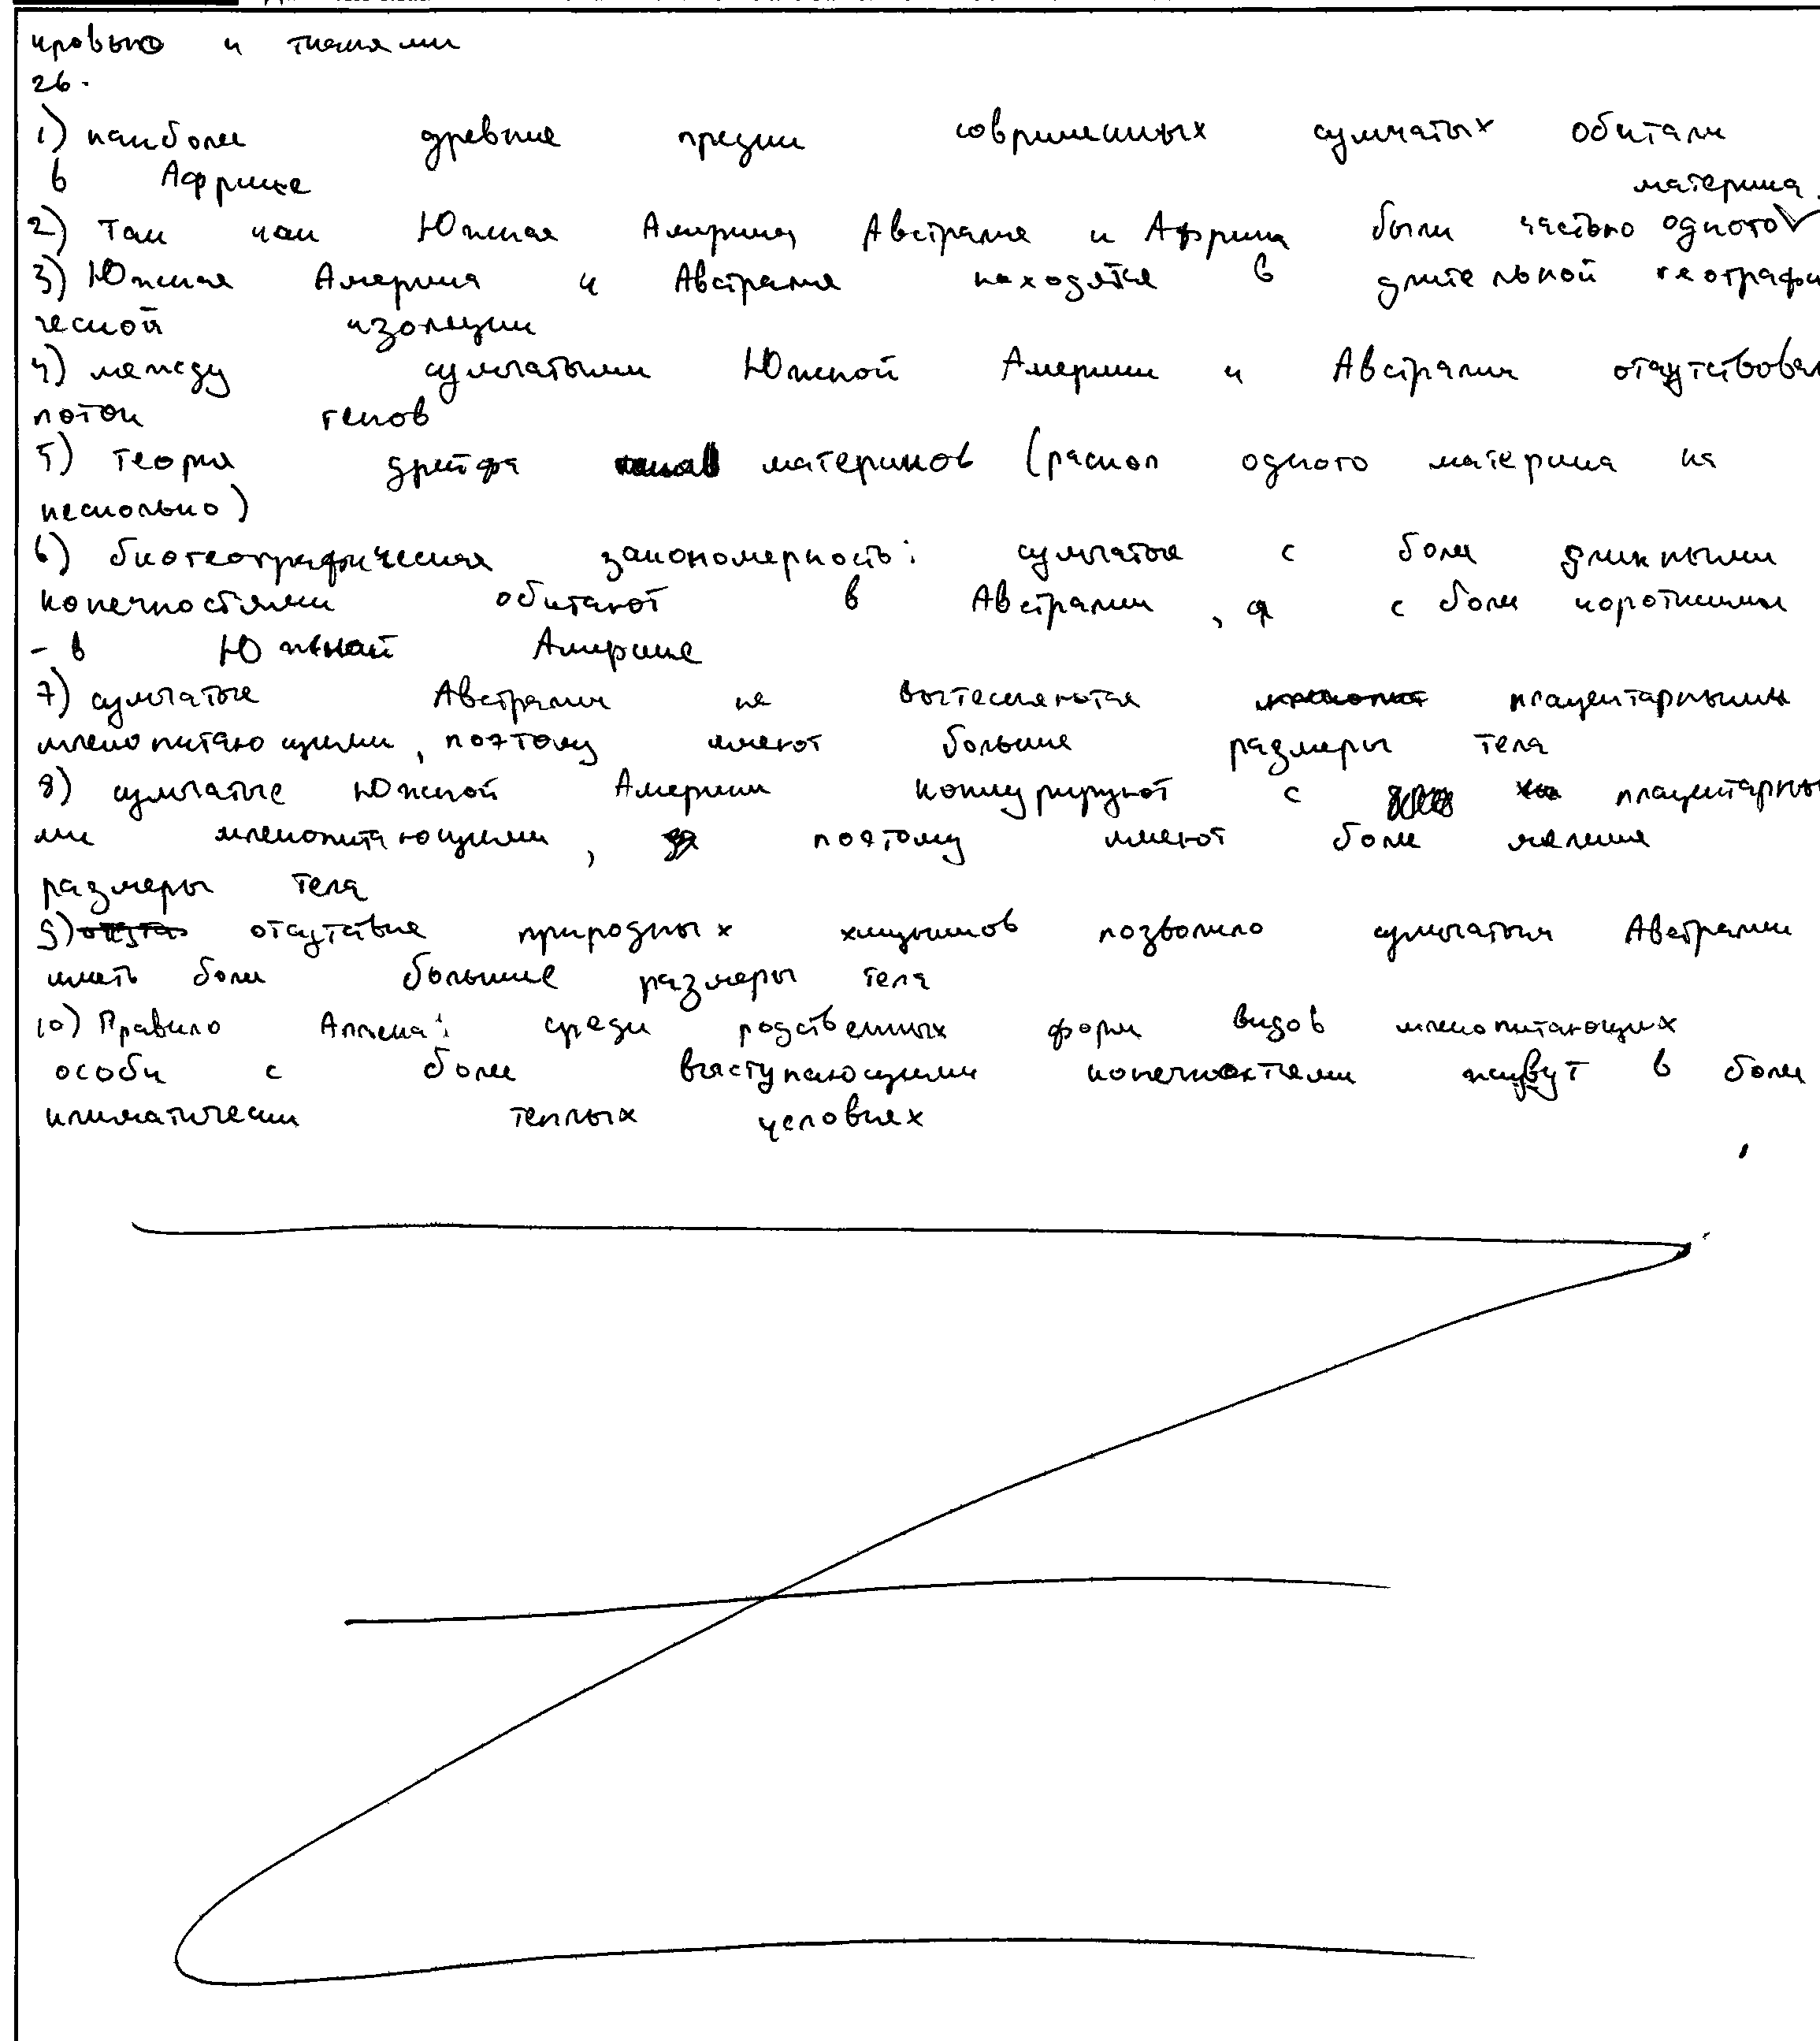 кровью и тканями
26.
1) наиболее древние предки современных сумчатых обитали
в Африке
2) Так как Южная Америка, Австралия и Африка были частью одного материка
3) Южная Америка и Австралия находятся в длительной географи
ческой изоляции
4) между сумчатыми Южной Америки и Австралии отсутствовал
поток генов
5) теория дрейфа материков (раскол одного материка на
несколько)
6) биогеографическая закономерность: сумчатые с более длинными
конечностями обитают в Австралии, а с более короткими
- в Южной Америке
7) сумчатые Австралии не вытесняются плацентарными
млекопитающими, поэтому имеют большие размеры тела
8) сумчатые Южной Америки конкурируют с плацентарны
ми млекопитающими, поэтому имеют более мелкие
размеры тела
9) отсутствие природных хищников позволило сумчатым Австралии
иметь более большие размеры тела
10) Правило Аллена: среди родственных форм видов млекопитающих
особи с более выступающими конечностями живут в более
климатически теплых условиях